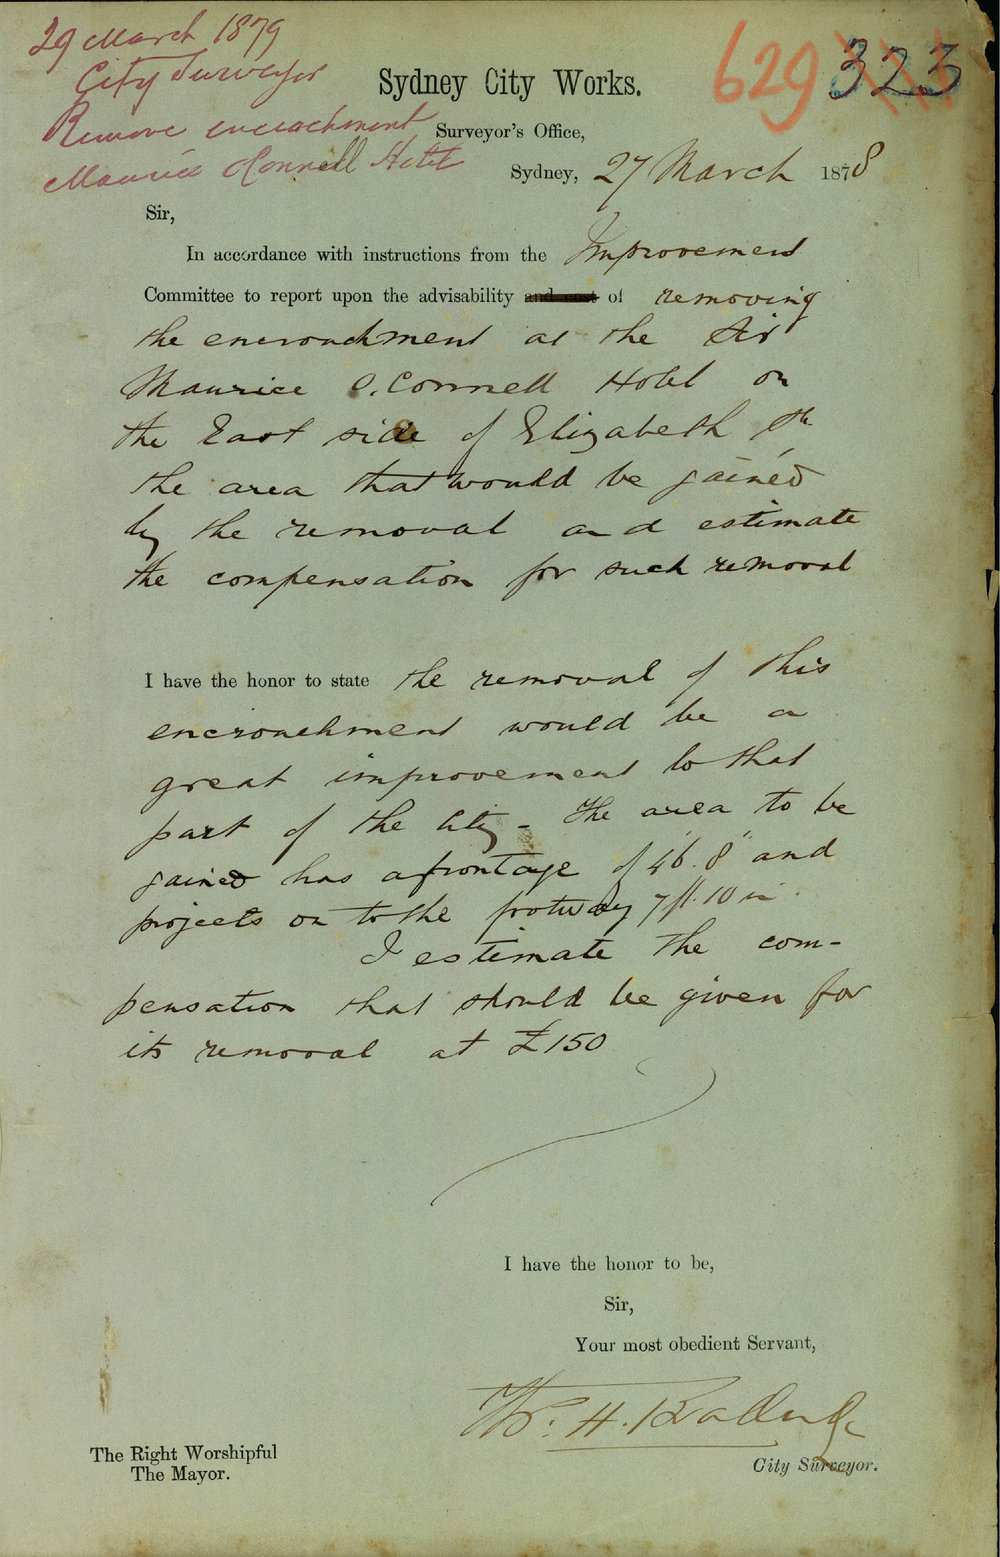 29 March 1879
City Surveyor
Remove encroachment
Maurice O'Connell Hotel
629 323
Sydney City Works.
Surveyor's Office,
Sydney, 27 March 1878
Sir,
In accordance with instructions from the Improvement
Committee to report upon the advisability and cost of removing
the encroachment at the Sir
Maurice O.Connell Hotel on
the East side of Elizabeth St.
the area that would be gained
by the removal and estimate
the compensation for such removal
I have the honor to state the removal of this
encroachment would be a
great improvement to that
part of the City - The area to be
gained has a frontage of 46'.8" and
projects on to the footway 7 ft. 10 in.
I estimate the com-
pensation that should be given for
its removal at £150
I have the honor to be,
Sir,
Your most obedient Servant,
City Surveyor.
The Right Worshipful
The Mayor.